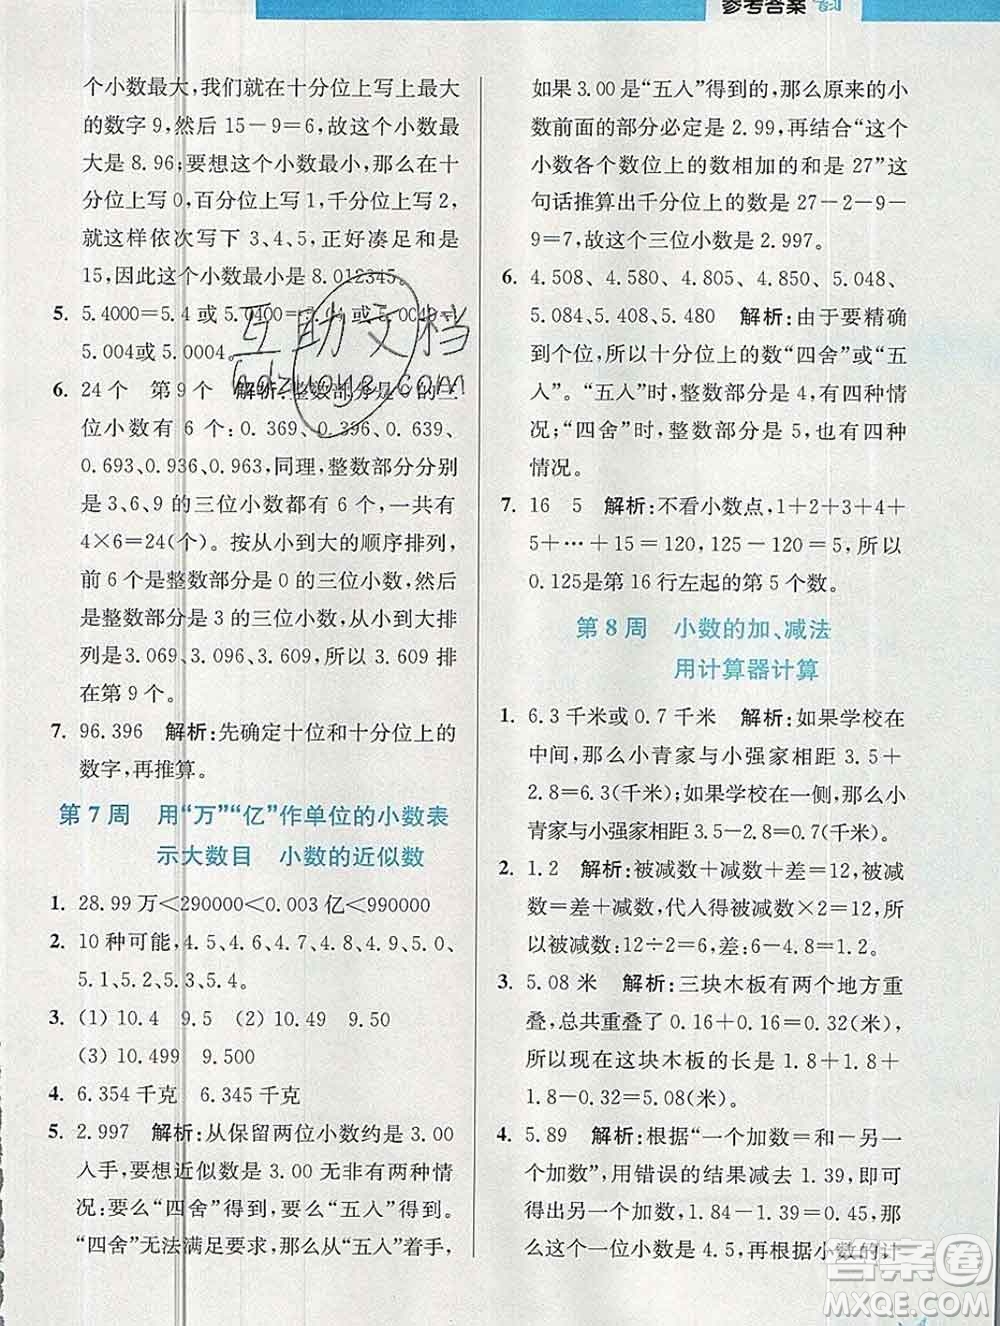 参考答案
个小数最大,我们就在十分位上写上最大
的数字 9,然后 15-9=6,故这个小数最
大是 8.96;要想这个小数最小,那么在十
分位上写 0,百分位上写 1,千分位上写 2,
就这样依次写下 3、4、5,正好凑足和是
15,因此这个小数最小是 8.012345。
5. 5.4000=5.4 或 5.0400=5.04 或 5.0040=
5.004或 5.0004。
6. 24 个 第 9 个 解析:整数部分是 0 的三
位小数有 6 个:0.369、0.396、0.639、
0.693、0.936、0.963,同理,整数部分分别
是 3、6、9 的三位小数都有 6 个,一共有
4×6=24(个)。按从小到大的顺序排列,
前 6 个是整数部分是 0 的三位小数,然后
是整数部分是 3 的三位小数,从小到大排
列是3.069、3.096、3.609,所以 3.609 排
在第 9 个。
7. 96.396 解析:先确定十位和十分位上的
数字,再推算。
第 7 周 用“万”“亿”作单位的小数表
示大数目 小数的近似数
1. 28.99 万<290000<0.003 亿<990000
2. 10 种可能,4.5、4.6、4.7、4.8、4.9、5.0、
5.1、5.2、5.3、5.4。
3. (1) 10.4 9.5 (2) 10.49 9.50
(3) 10.499 9.500
4. 6.354 千克 6.345 千克
5. 2.997 解析:从保留两位小数约是 3.00
入手,要想近似数是 3.00 无非有两种情
况:要么“四舍”得到,要么“五入”得到。
“四舍”无法满足要求,那么从“五入”着手,
如果 3.00 是“五入”得到的,那么原来的小
数前面的部分必定是 2.99,再结合“这个
小数各个数位上的数相加的和是 27”这
句话推算出千分位上的数是 27-2-9-
9=7,故这个三位小数是 2.997。
6. 4.508、4.580、4.805、4.850、5.048、
5.084、5.408、5.480 解析:由于要精确
到个位,所以十分位上的数“四舍”或“五
入”。“五入”时,整数部分是 4,有四种情
况;“四舍”时,整数部分是 5,也有四种
情况。
7. 16 5 解析:不看小数点,1+2+3+4+
5+…+15=120,125-120=5,所以
0.125是第 16 行左起的第 5 个数。
第 8 周 小数的加、减法
用计算器计算
1. 6.3 千米或 0.7 千米 解析:如果学校在
中间,那么小青家与小强家相距 3.5+
2.8=6.3(千米);如果学校在一侧,那么小
青家与小强家相距 3.5-2.8=0.7(千米)。
2. 1.2 解析:被减数+减数+差=12,被减
数=差+减数,代入得被减数×2=12,所
以被减数:12÷2=6,差:6-4.8=1.2。
3. 5.08 米 解析:三块木板有两个地方重
叠,总共重叠了 0.16+0.16=0.32(米),
所以现在这块木板的长是 1.8+1.8+
1.8-0.32=5.08(米)。
4. 5.89 解析:根据“一个加数=和-另一
个加数”,用错误的结果减去 1.39,即可
得到另一个加数:1.84-1.39=0.45,那
么这个一位小数是 4.5,再根据小数的计
互助文档
hdzuoye.com
答案圈
MXQE.COM